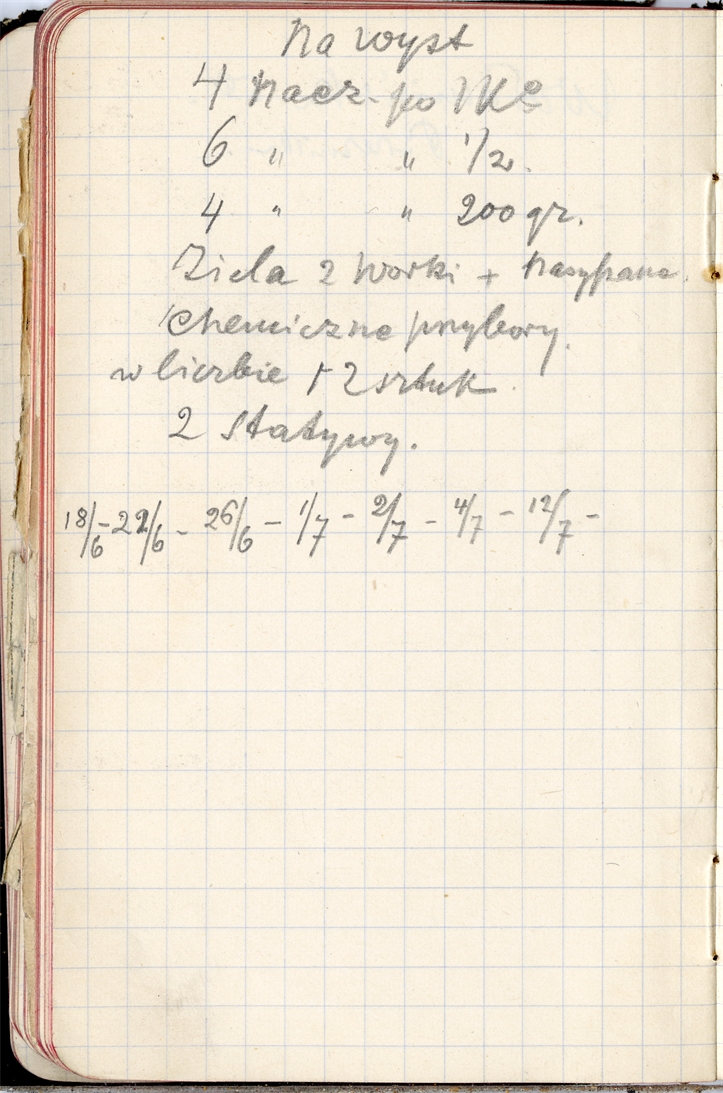 Na wyst
4 Nacz. po 1 Kg
6 " " 1/2.
4 " " 200 gr.
Ziela 2 Worki + Nasypane.
Chemiczne przybory.
w liczbie 12 sztuk.
2 Statywy.
18/6 - 22/6 - 26/6 - 1/7 - 2/7 - 4/7 - 12/7 -